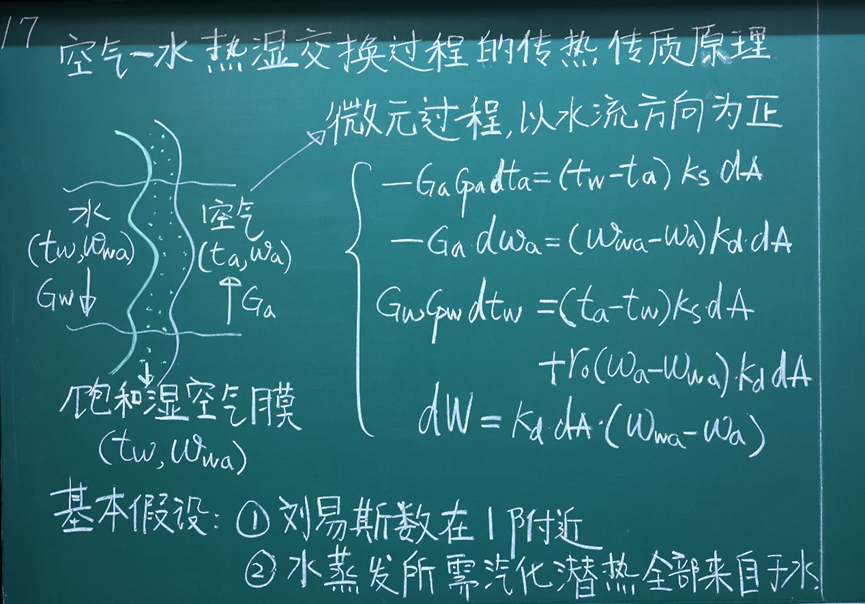 17
空气-水热湿交换过程的传热传质原理
微元过程,以水流方向为正
水
(tw,ωwa)
Gw
空气
(ta,ωa)
Ga
饱和湿空气膜
(tw,ωwa)
-GaCpadta=(tw-ta)ksdA
-Ga·dωa=(ωwa-ωa)kd·dA
GwCpwdtw=(ta-tw)ks·dA
+r₀(ωa-ωwa)·kd·dA
dW=kd·dA·(ωwa-ωa)
基本假设:①刘易斯数在1附近
②水蒸发所需汽化潜热全部来自于水